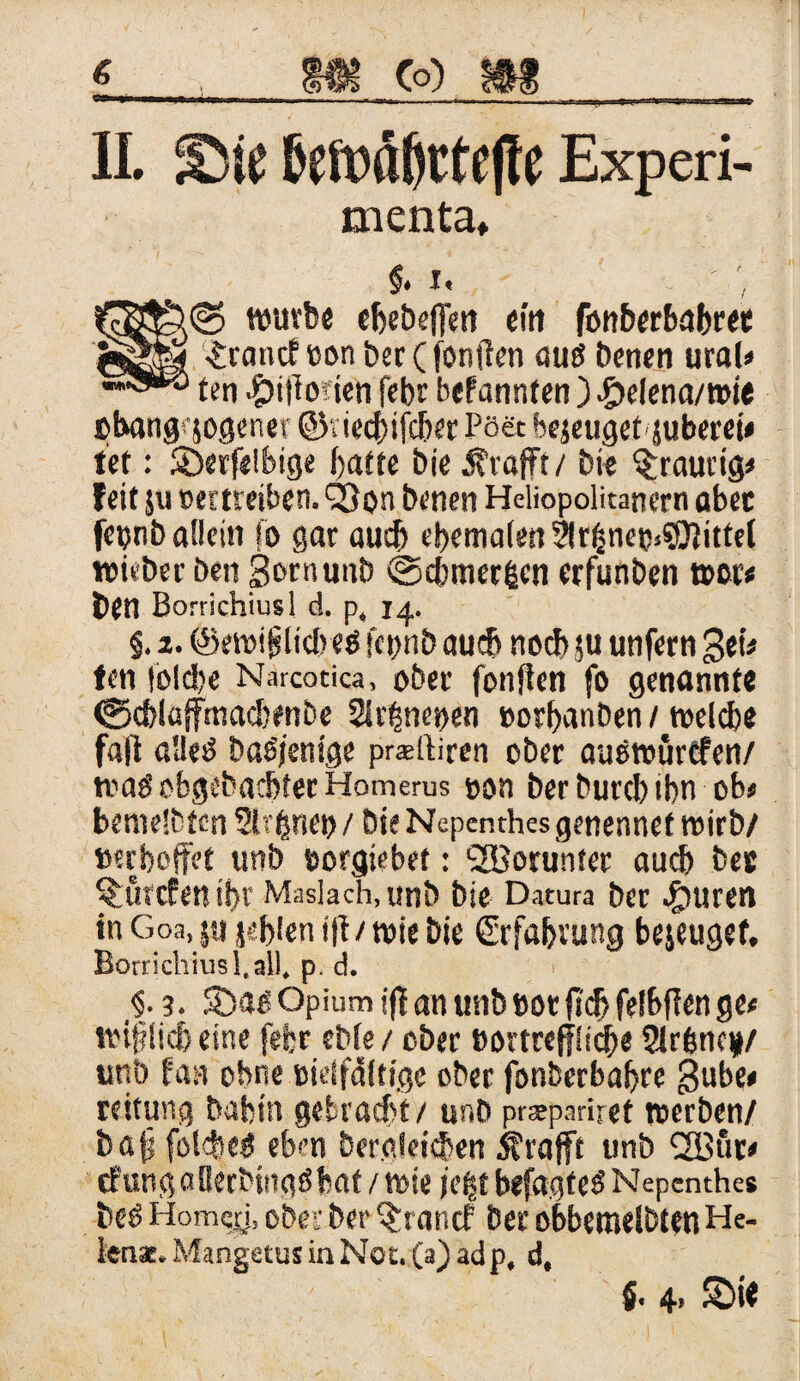 6 (o)
II. Die bewährteste Experi-
menta.
§. 1.
ES wurde ehedessen ein sonderbahrer
Tranck von der (sonsten aus denen ural-
ten Historien sehr bekannten) Helena/wie
obangezogener Griechischer Poët bezeuget zuberei-
tet: Derselbige hatte die Krafft/ die Traurig-
keit zu vertreiben. Von denen Heliopolitanern aber
seynd allein so gar auch ehemalen Artzney-Mittel
wieder den Zorn und Schmertzen erfunden wor-
den Borrichius l. d. p. 14.
§. 2. Gewißlich es seynd auch noch zu unsern Zei-
ten solche Narcotica, oder sonsten so genannte
Schlaffmachende Artzneyen vorhanden / welche
fast alles dasjenige præstiren oder auswürcken/
was obgedachter Homerus von der durch ihn ob-
bemeldten Artzney / die Nepenthes genennet wird/
verhoffet und vorgiebet: Worunter auch der
Türcken ihr Maslach, und die Datura der Huren
in Goa, zu zehlen ist / wie die Erfahrung bezeuget.
Borrichius l. all. p. d.
§. 3. Das Opium ist an und vor sich selbsten ge-
wißlich eine sehr edle / oder vortreffliche Artzney/
und kan ohne vielfältige oder sonderbahre Zube-
reitung dahin gebracht/ und præpariret werden/
daß solches eben dergleichen Krafft und Wür-
ckung allerdings hat / wie jetzt besagtes Nepenthes
des Homeri, oder der Tranck der obbemeldten He-
lenæ. Mangetus in Not. (a) ad p. d.
§. 4. Die